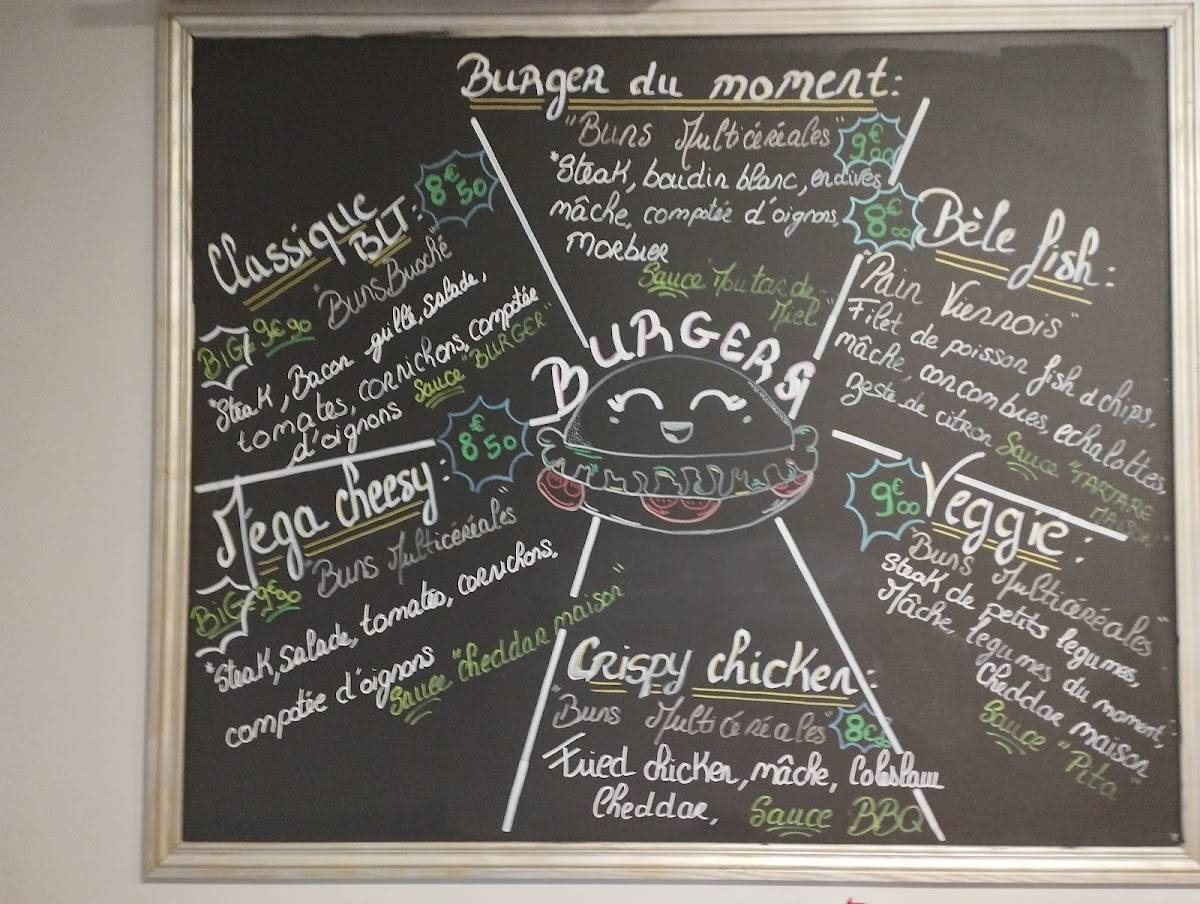 Burger du moment:
"Buns Multicéréales"
9€00
*Steak, boudin blanc, endives
mâche, compotée d'oignons,
Morbier
Sauce "Moutarde-
Miel"
Classique
BLT:
8€50
"Buns Buoché"
BIG 9€90
*Steak, Bacon grillé, salade,
tomates, cornichons, compotée
d'oignons
Sauce "BURGER"
Bèle fish:
8€00
"Pain Viennois"
Filet de poisson fish & chips,
mâche, concombres, echalottes,
Zeste de citron
Sauce "TARTARE
MAISON"
BURGERS
Méga cheesy:
8€50
"Buns Multicéréales"
BIG 9€90
*Steak, salade, tomates, cornichons,
compotée d'oignons
Sauce "cheddar maison"
Veggie:
9€00
"Buns Multicéréales"
Steak de petits legumes,
Mâche, legumes du moment,
Cheddar maison
Sauce "Pita"
Crispy chicken:
"Buns Multicéréales"
8€
Fried chicken, mâche, Coleslaw
Cheddar,
Sauce BBQ